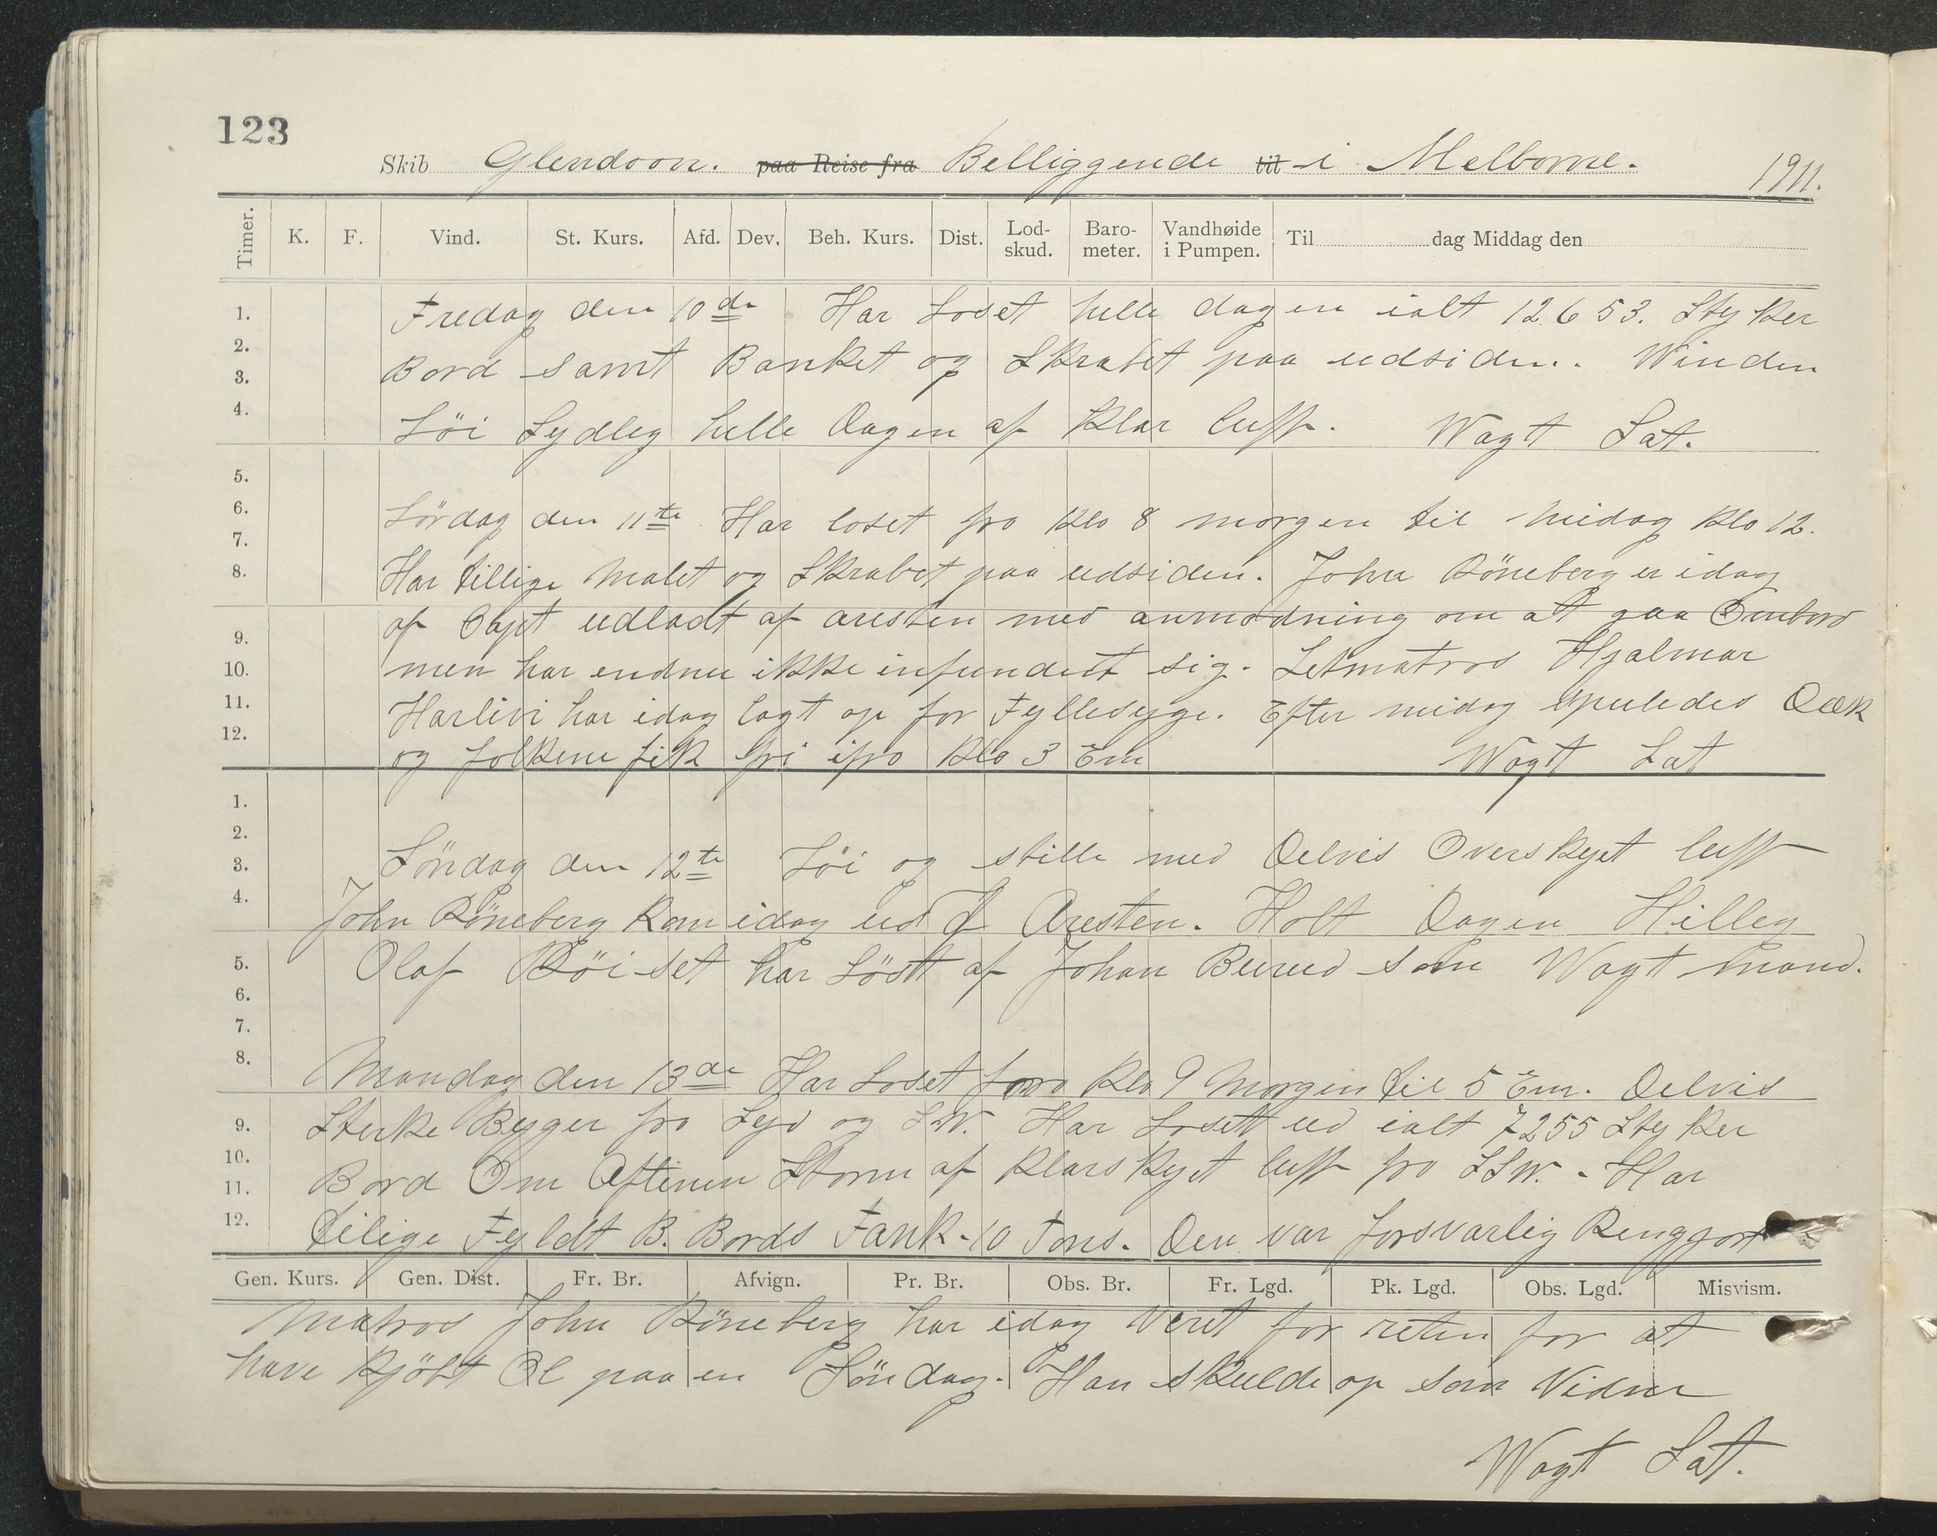 123
Skib Glendoon. paa Reise fra Belliggende til i Melborne. 1911.
Timer. K. F. Vind. St. Kurs. Afd. Dev. Beh. Kurs. Dist. Lod-skud. Baro-meter. Vandhøide i Pumpen. Til dag Middag den
1.
2.
3.
4.
Fredag den 10de Har Loset helle dagen ialt 12653. Styker
Bord samt Banket og Skrabet paa udsiden. Winden
Löi Sydleg helle Dagen af Klar luft. Wagt Sat.
5.
6.
7.
8.
9.
10.
11.
12.
Lördag den 11te Har loset fra Klo 8 morgen til Midag Klo 12.
Har tillige Malet og Skrabet paa udsiden. John Röneberg er idag
af Capt udladt af aresten med anmodning om at gaa Ombord
men har endnu ikke infundett sig. Letmatros Hjalmar
Harlivi har idag lagt op for Fyllesyge. Efter midag spuledes Dæk
og folkene fik fri ifra Klo 3 Em Wagt Sat
1.
2.
3.
4.
5.
6.
7.
8.
9.
10.
11.
12.
Söndag den 12te Löi og stille med Delvis Overskyet luft
John Röneberg Kom idag ud Aresten. Holt Dagen Hilleg
Olaf Röiset har Löst af Johan Burud som Wagt mand.
Mandag den 13de Har Loset fra Klo 9 Morgen til 5 Em. Delvis
Sterke Byger fra Syd og S.W. Har Losett ud ialt 7255 Styker
Bord Om Aftenen Storm af Klarskyet luft fra SSW. - Har
tilige Fyldt B. Bords Tank - 10 Tons. Den var forsvarlig Rengjort
Gen. Kurs. Gen. Dist. Fr. Br. Afvign. Pr. Br. Obs. Br. Fr. Lgd. Pk. Lgd. Obs. Lgd. Misvism.
Matros John Röneberg har idag Veret for reten for at
have Kjöbt Öl paa en Söndag. Han skulde op som Vidne
Wagt Sat.